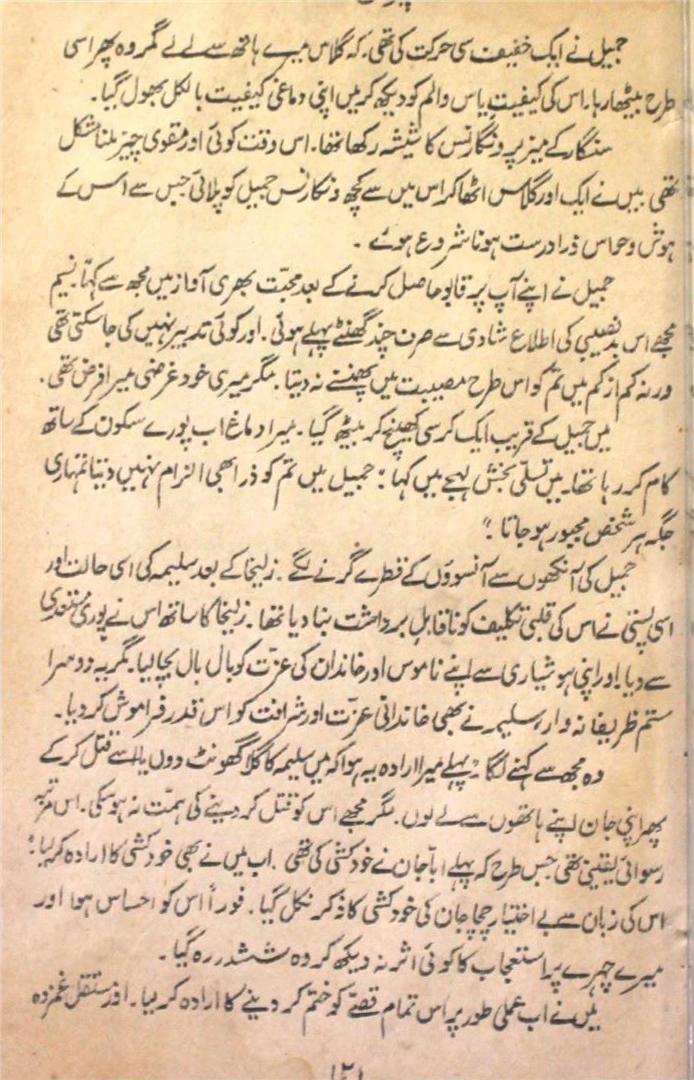 جمیل نے ایک خفیف سی حرکت کی تھی۔ کہ گلاس میرے ہاتھ سے لے لے مگر وہ پھر اسی
طرح بیٹھا رہا۔ اس کی کیفیتِ یاس والم کو دیکھ کر میں اپنی دماغی کیفیت بالکل بھول گیا۔
سنگار کے میز پر ونکارنس کا شیشہ رکھا تھا۔ اس وقت کوئی اور مقوی چیز ملنا مشکل
تھی میں نے ایک اور گلاس اٹھا کر اس میں سے کچھ ونکارنس جمیل کو پلائی جس سے اس کے
ہوش و حواس ذرا درست ہونا شروع ہوئے۔
جمیل نے اپنے آپ پر قابو حاصل کرنے کے بعد محبّت بھری آواز میں مجھ سے کہا۔ نسیم
مجھے اس بدنصیبی کی اطلاع شادی سے صرف چند گھنٹے پہلے ہوئی۔ اور کوئی تدبیر نہیں کی جاسکتی تھی
ورنہ کم از کم میں تم کو اس طرح مصیبت میں پھنسنے نہ دیتا۔ مگر میری خود غرضی میرا فرض تھی۔
میں جمیل کے قریب ایک کرسی کھینچ کر بیٹھ گیا۔ میرا دماغ اب پورے سکون کے ساتھ
کام کر رہا تھا۔ میں تسلّی بخش لہجے میں کہا " جمیل میں تم کو ذرا بھی الزام نہیں دیتا تمہاری
جگہ ہر شخص مجبور ہو جاتا "
جمیل کی آنکھوں سے آنسوؤں کے قطرے گرنے لگے۔ زلیخا کے بعد سلیمہ کی اسی حالت اور
اسی پستی نے اس کی قلبی تکلیف کو ناقابلِ برداشت بنا دیا تھا۔ زلیخا کا ساتھ اس نے پوری مستعدی
سے دیا اور اپنی ہوشیاری سے اپنے ناموس اور خاندان کی عزّت کو بال بال بچا لیا۔ مگر یہ دوسرا
ستم ظریفانہ وار، سلیمہ نے بھی خاندانی عزّت اور شرافت کو اس قدر فراموش کر دیا۔
وہ مجھ سے کہنے لگا "پہلے میرا ارادہ یہ ہوا کہ میں سلیمہ کا گلا گھونٹ دوں یا اسے قتل کر کے
پھر اپنی جان اپنے ہاتھوں سے لے لوں۔ مگر مجھے اس کو قتل کر دینے کی ہمت نہ ہو سکی۔ اس مرتبہ
رسوائی یقینی تھی جس طرح کہ پہلے ابّا جان نے خودکشی کی تھی۔ اب میں نے بھی خودکشی کا ارادہ کر لیا"
اس کی زبان سے بے اختیار چچا جان کی خودکشی کا ذکر نکل گیا۔ فوراً اس کو احساس ہوا اور
میرے چہرے پر استعجاب کا کوئی اثر نہ دیکھ کر وہ ششدر رہ گیا۔
میں نے اب عملی طور پر اس تمام قصّے کو ختم کر دینے کا ارادہ کر لیا۔ اور مستقل غمزدہ
۱۲۱